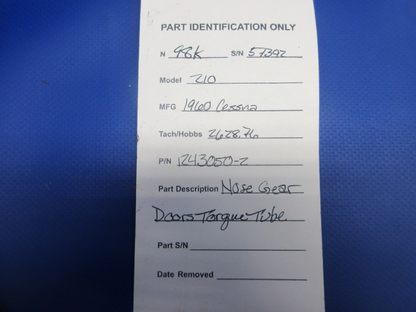 PART IDENTIFICATION ONLY
N 98K S/N 57392
Model 210
MFG 1960 Cessna
Tach/Hobbs 2628.76
P/N 1243050-2
Part Description Nose Gear
Doors Torque Tube
Part S/N
Date Removed